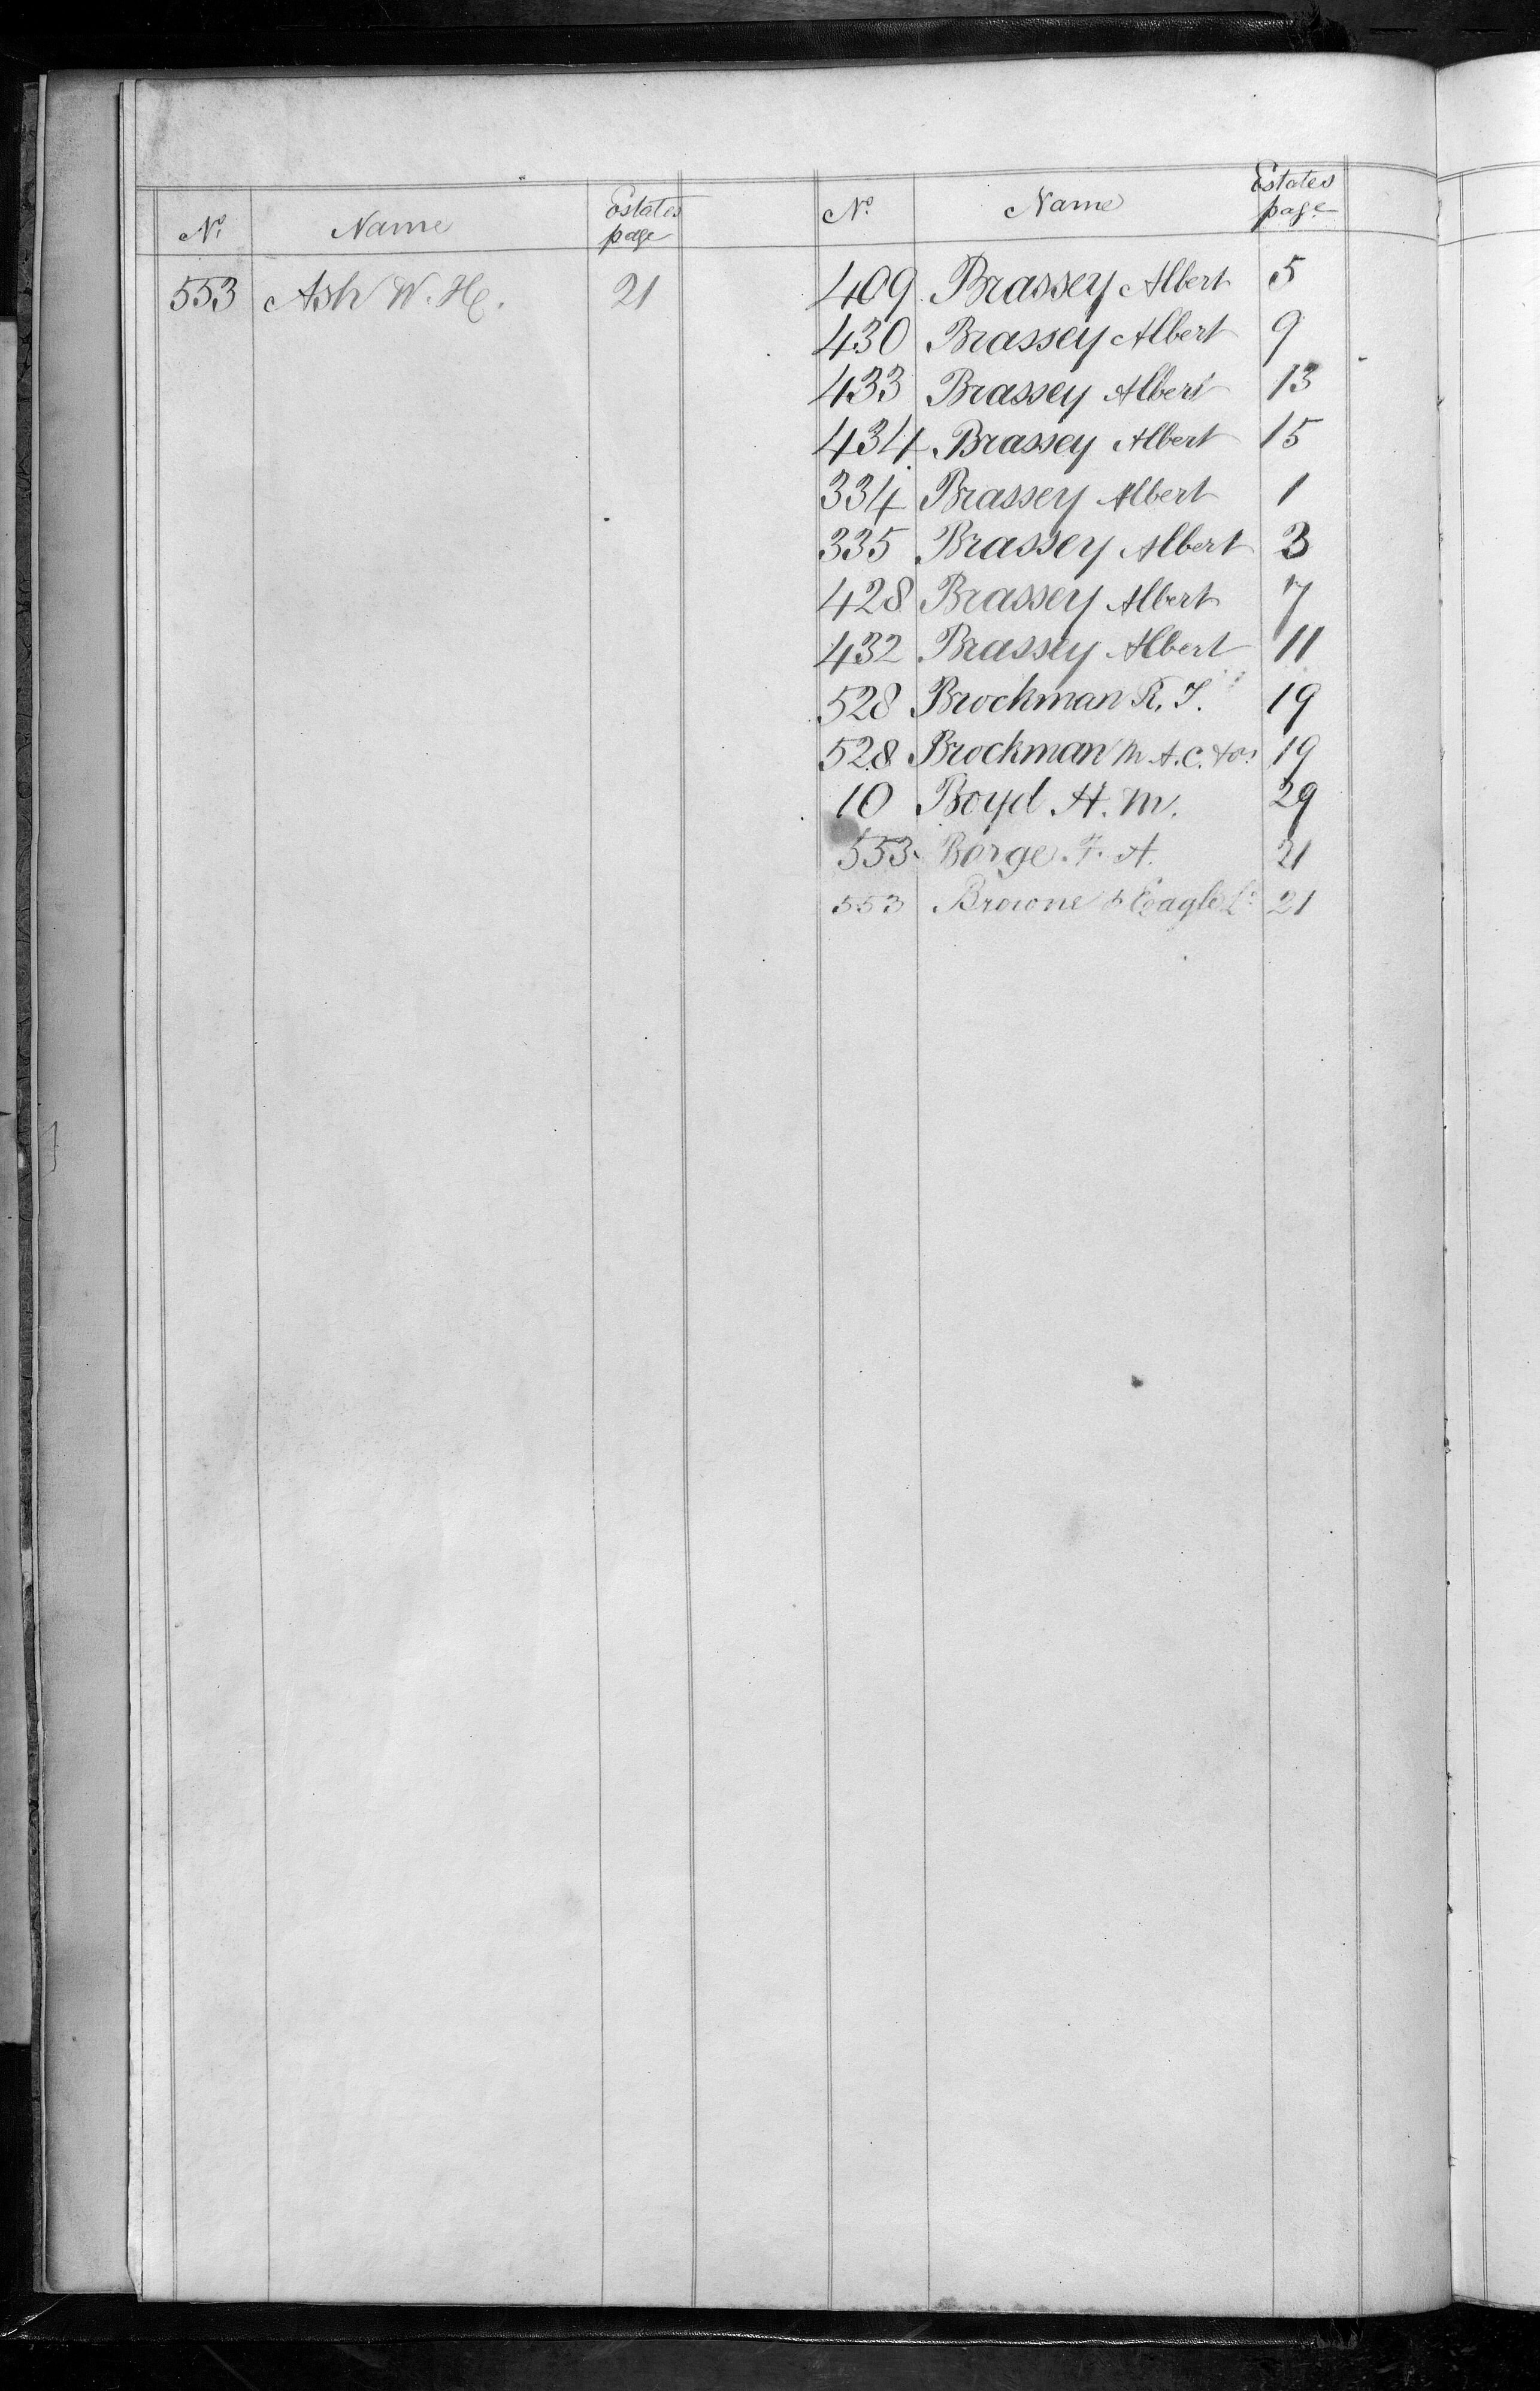 No Name Estates page
553 Ash W. H. 21
No Name Estates page
409 Brassey Albert 5
430 Brassey Albert 9
433 Brassey Albert 13
434 Brassey Albert 15
334 Brassey Albert 1
335 Brassey Albert 3
428 Brassey Albert 7
432 Brassey Albert 11
528 Brockman R. T. 19
528 Brockman M A. C. & ors 19
10 Boyd H. M. 29
553 Barge F. A. 21
553 Browne & Eagle Ld 21